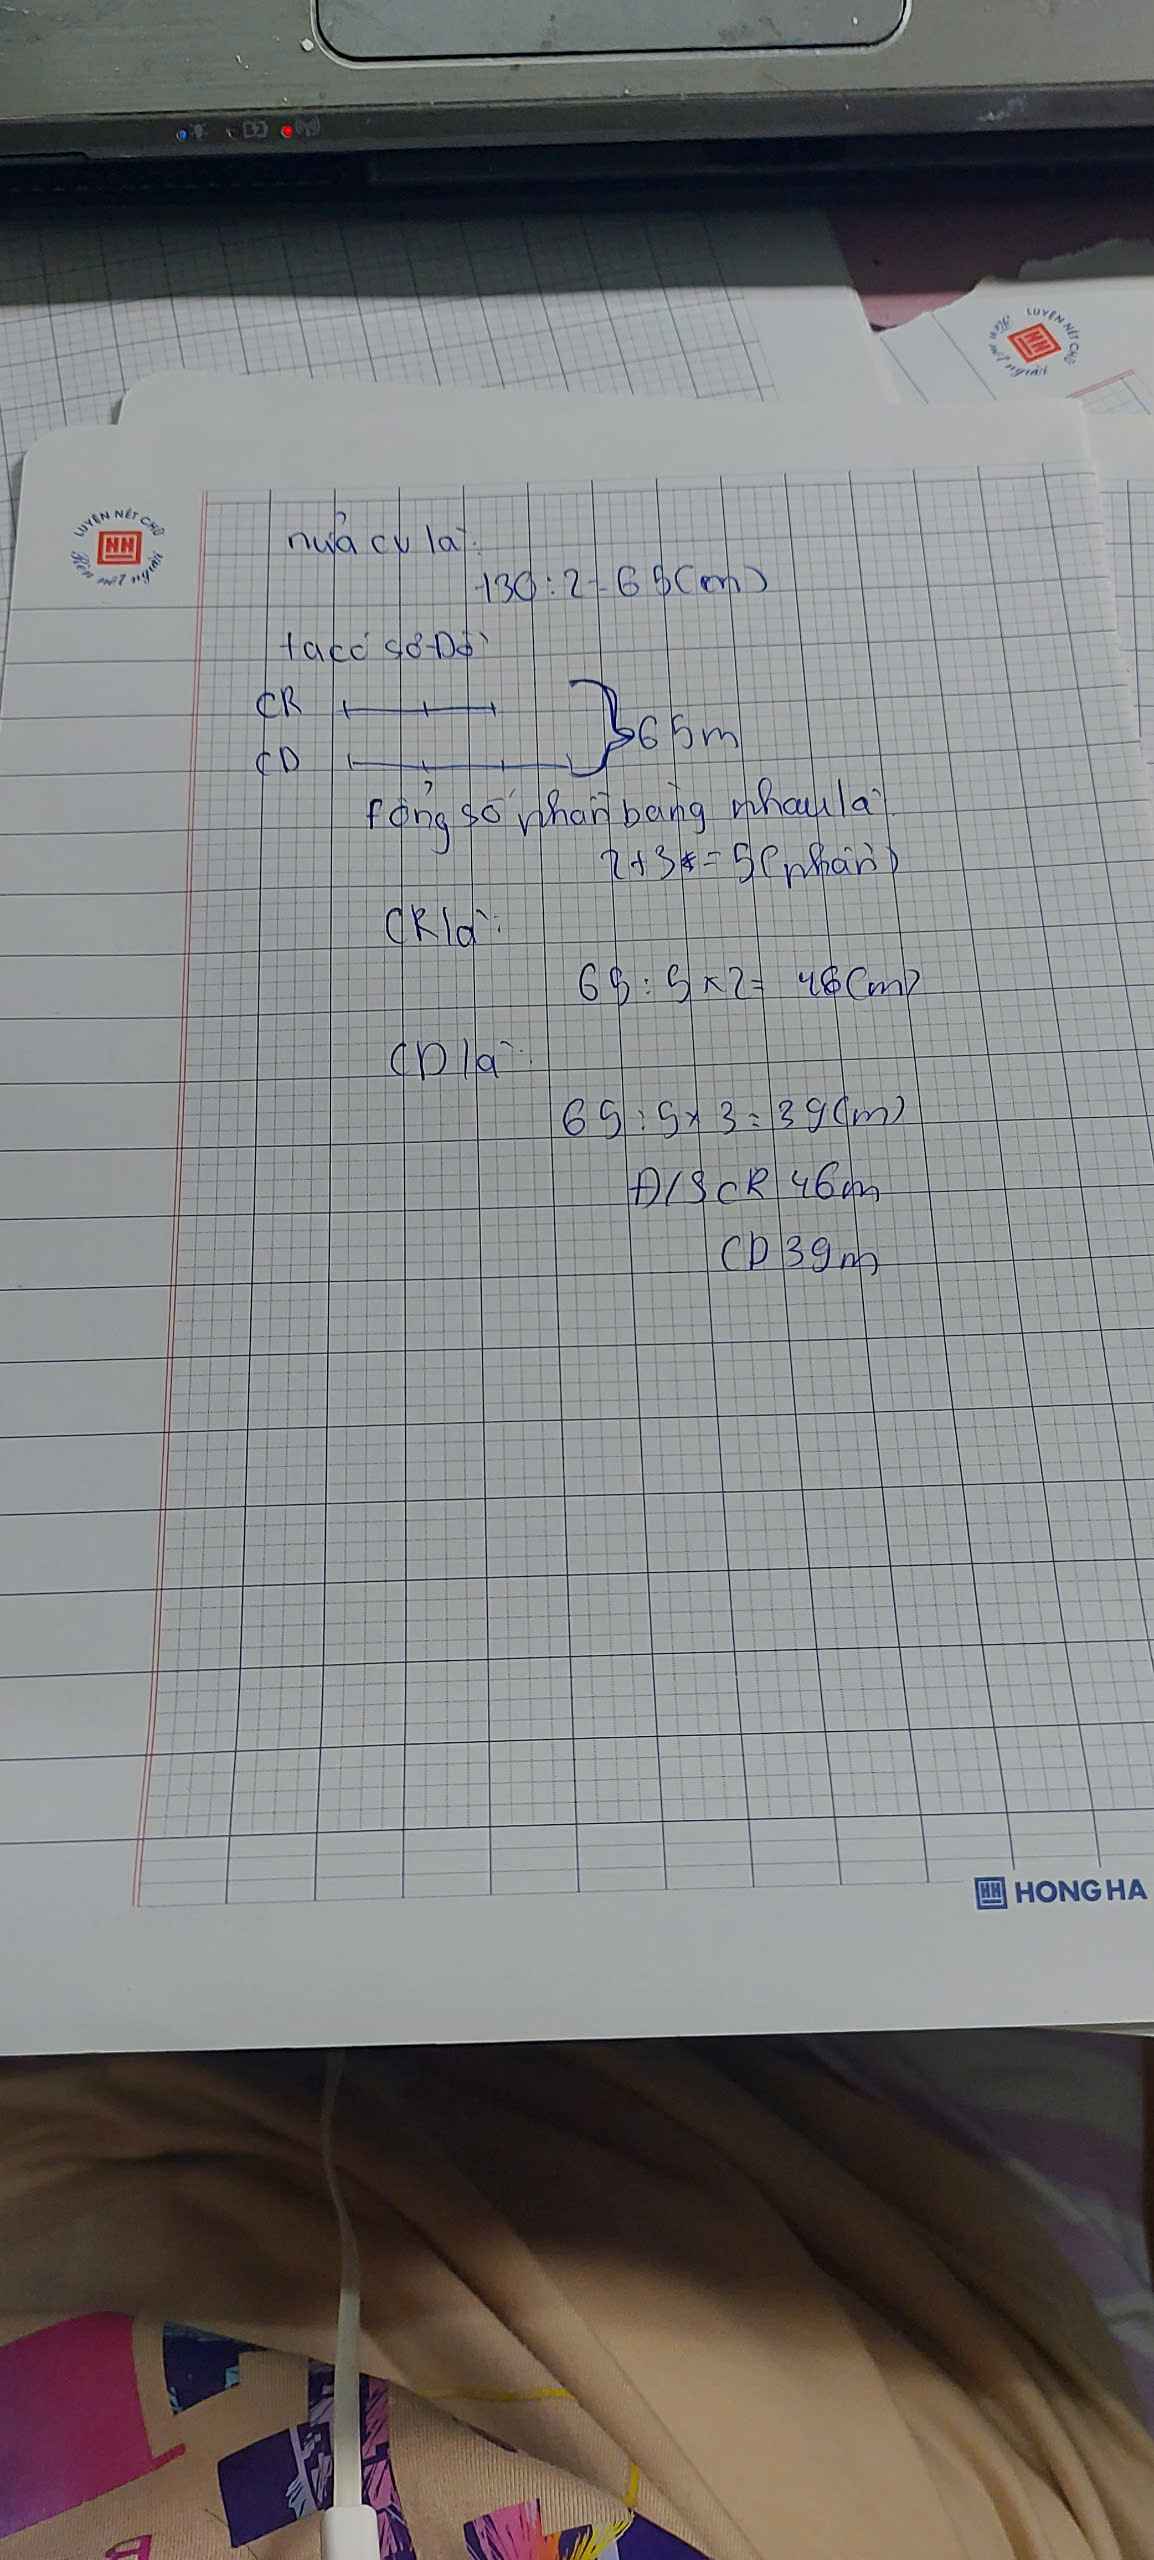 LUYỆN NÉT CHỮ
Rèn nết người
HH
LUYỆN NÉT CHỮ
Rèn nết người
HH
nửa cv là:
130:2=65(m)
ta có sơ Đồ
CR
CD
65m
tổng số phần bằng nhau là:
2+3=5(phần)
CR là:
65:5×2= 46(m)
CD là:
65:5×3=39(m)
Đ/S CR 46m
CD 39m
HH HONG HA